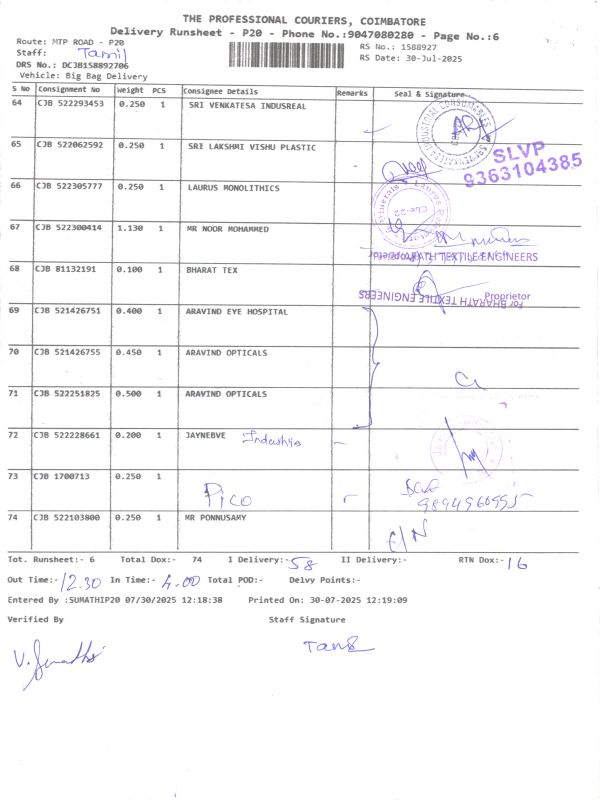 THE PROFESSIONAL COURIERS, COIMBATORE
Delivery Runsheet - P20 - Phone No.:9047080280 - Page No.:6
Route: MTP ROAD - P20
RS No.: 1588927
Staff: Tamil
RS Date: 30-Jul-2025
DRS No.: DCJB158892706
Vehicle: Big Bag Delivery
S No Consignment No Weight PCS Consignee Details Remarks Seal & Signature
64 CJB 522293453 0.250 1 SRI VENKATESA INDUSREAL
65 CJB 522062592 0.250 1 SRI LAKSHMI VISHU PLASTIC
SLVP
9363104385
66 CJB 522305777 0.250 1 LAURUS MONOLITHICS
Cbe-22
67 CJB 522300414 1.130 1 MR NOOR MOHAMMED
68 CJB 81132191 0.100 1 BHARAT TEX
for BHARATH TEXTILE ENGINEERS
Proprietor
69 CJB 521426751 0.400 1 ARAVIND EYE HOSPITAL
70 CJB 521426755 0.450 1 ARAVIND OPTICALS
71 CJB 522251825 0.500 1 ARAVIND OPTICALS
72 CJB 522228661 0.200 1 JAYNEBVE
73 CJB 1700713 0.250 1 Pico
74 CJB 522103800 0.250 1 MR PONNUSAMY
Tot. Runsheet:- 6 Total Dox:- 74 I Delivery:- 58 II Delivery:- RTN Dox:- 16
Out Time:- 12.30 In Time:- 4.00 Total POD:- Delvy Points:-
Entered By :SUMATHIP20 07/30/2025 12:18:38 Printed On: 30-07-2025 12:19:09
Verified By Staff Signature
V. Sumathi